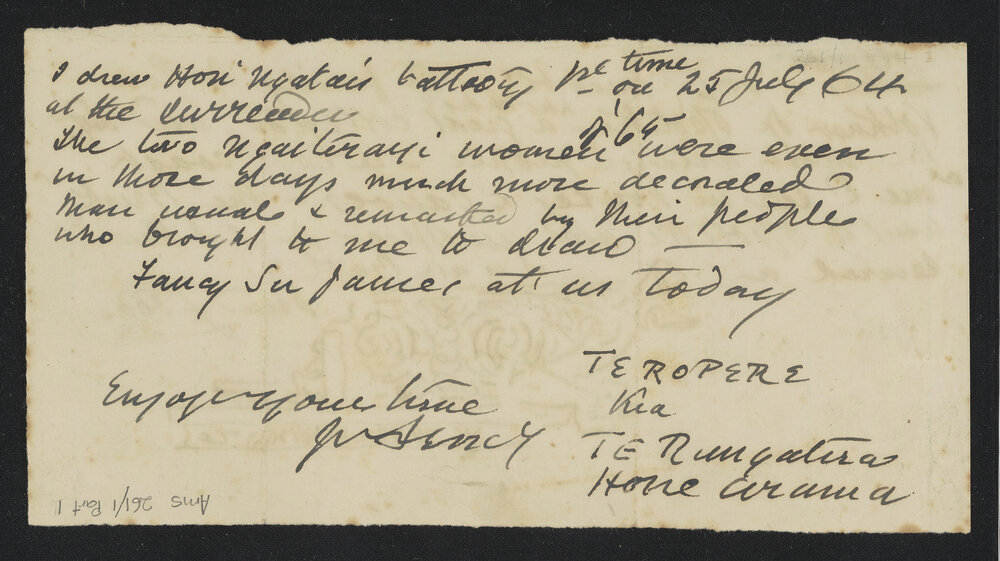 I drew Hori Ngatai's tattooing 1st time on 25 July 64
at the surrender
The two Ngaiterangi women of 65 were even
in those days much more decorated
than usual & remarked by their people
who brought to me to draw —
Fancy Sir James at us today
TE ROPERE
Kia
Enjoy your time
TE Rangatira
Hone
Ams 261/1 Part 1